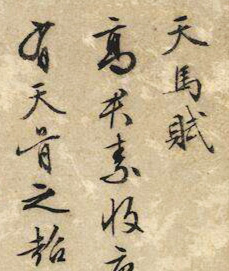 天馬賦
高君素收
有天骨之超